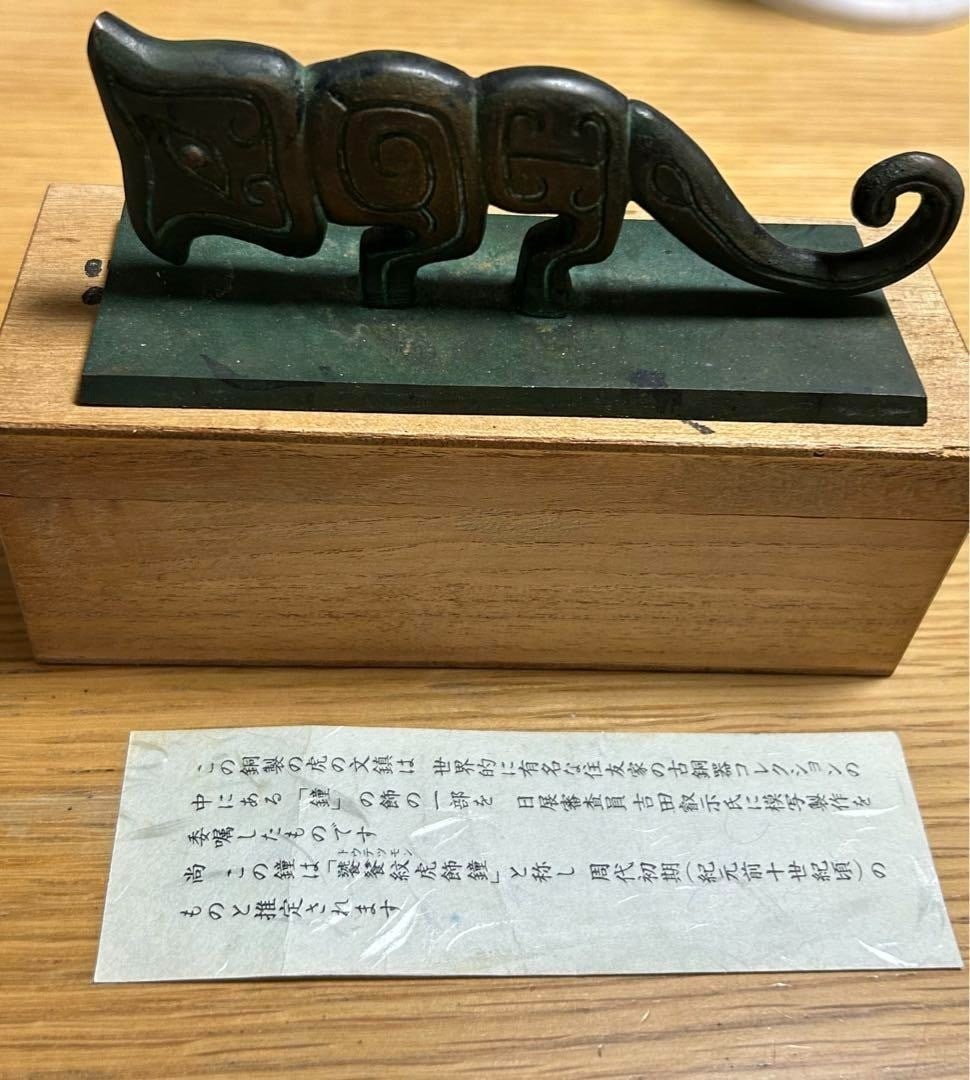 この銅製の虎の文鎮は 世界的に有名な住友家の古銅器コレクションの
中にある「鐘」の飾の一部を 日展審査員吉田叡示氏に模写製作を
委嘱したものです
トウテツモン
尚 この鐘は「饕餮紋虎飾鐘」と称し 周代初期(紀元前十世紀頃)の
ものと推定されます